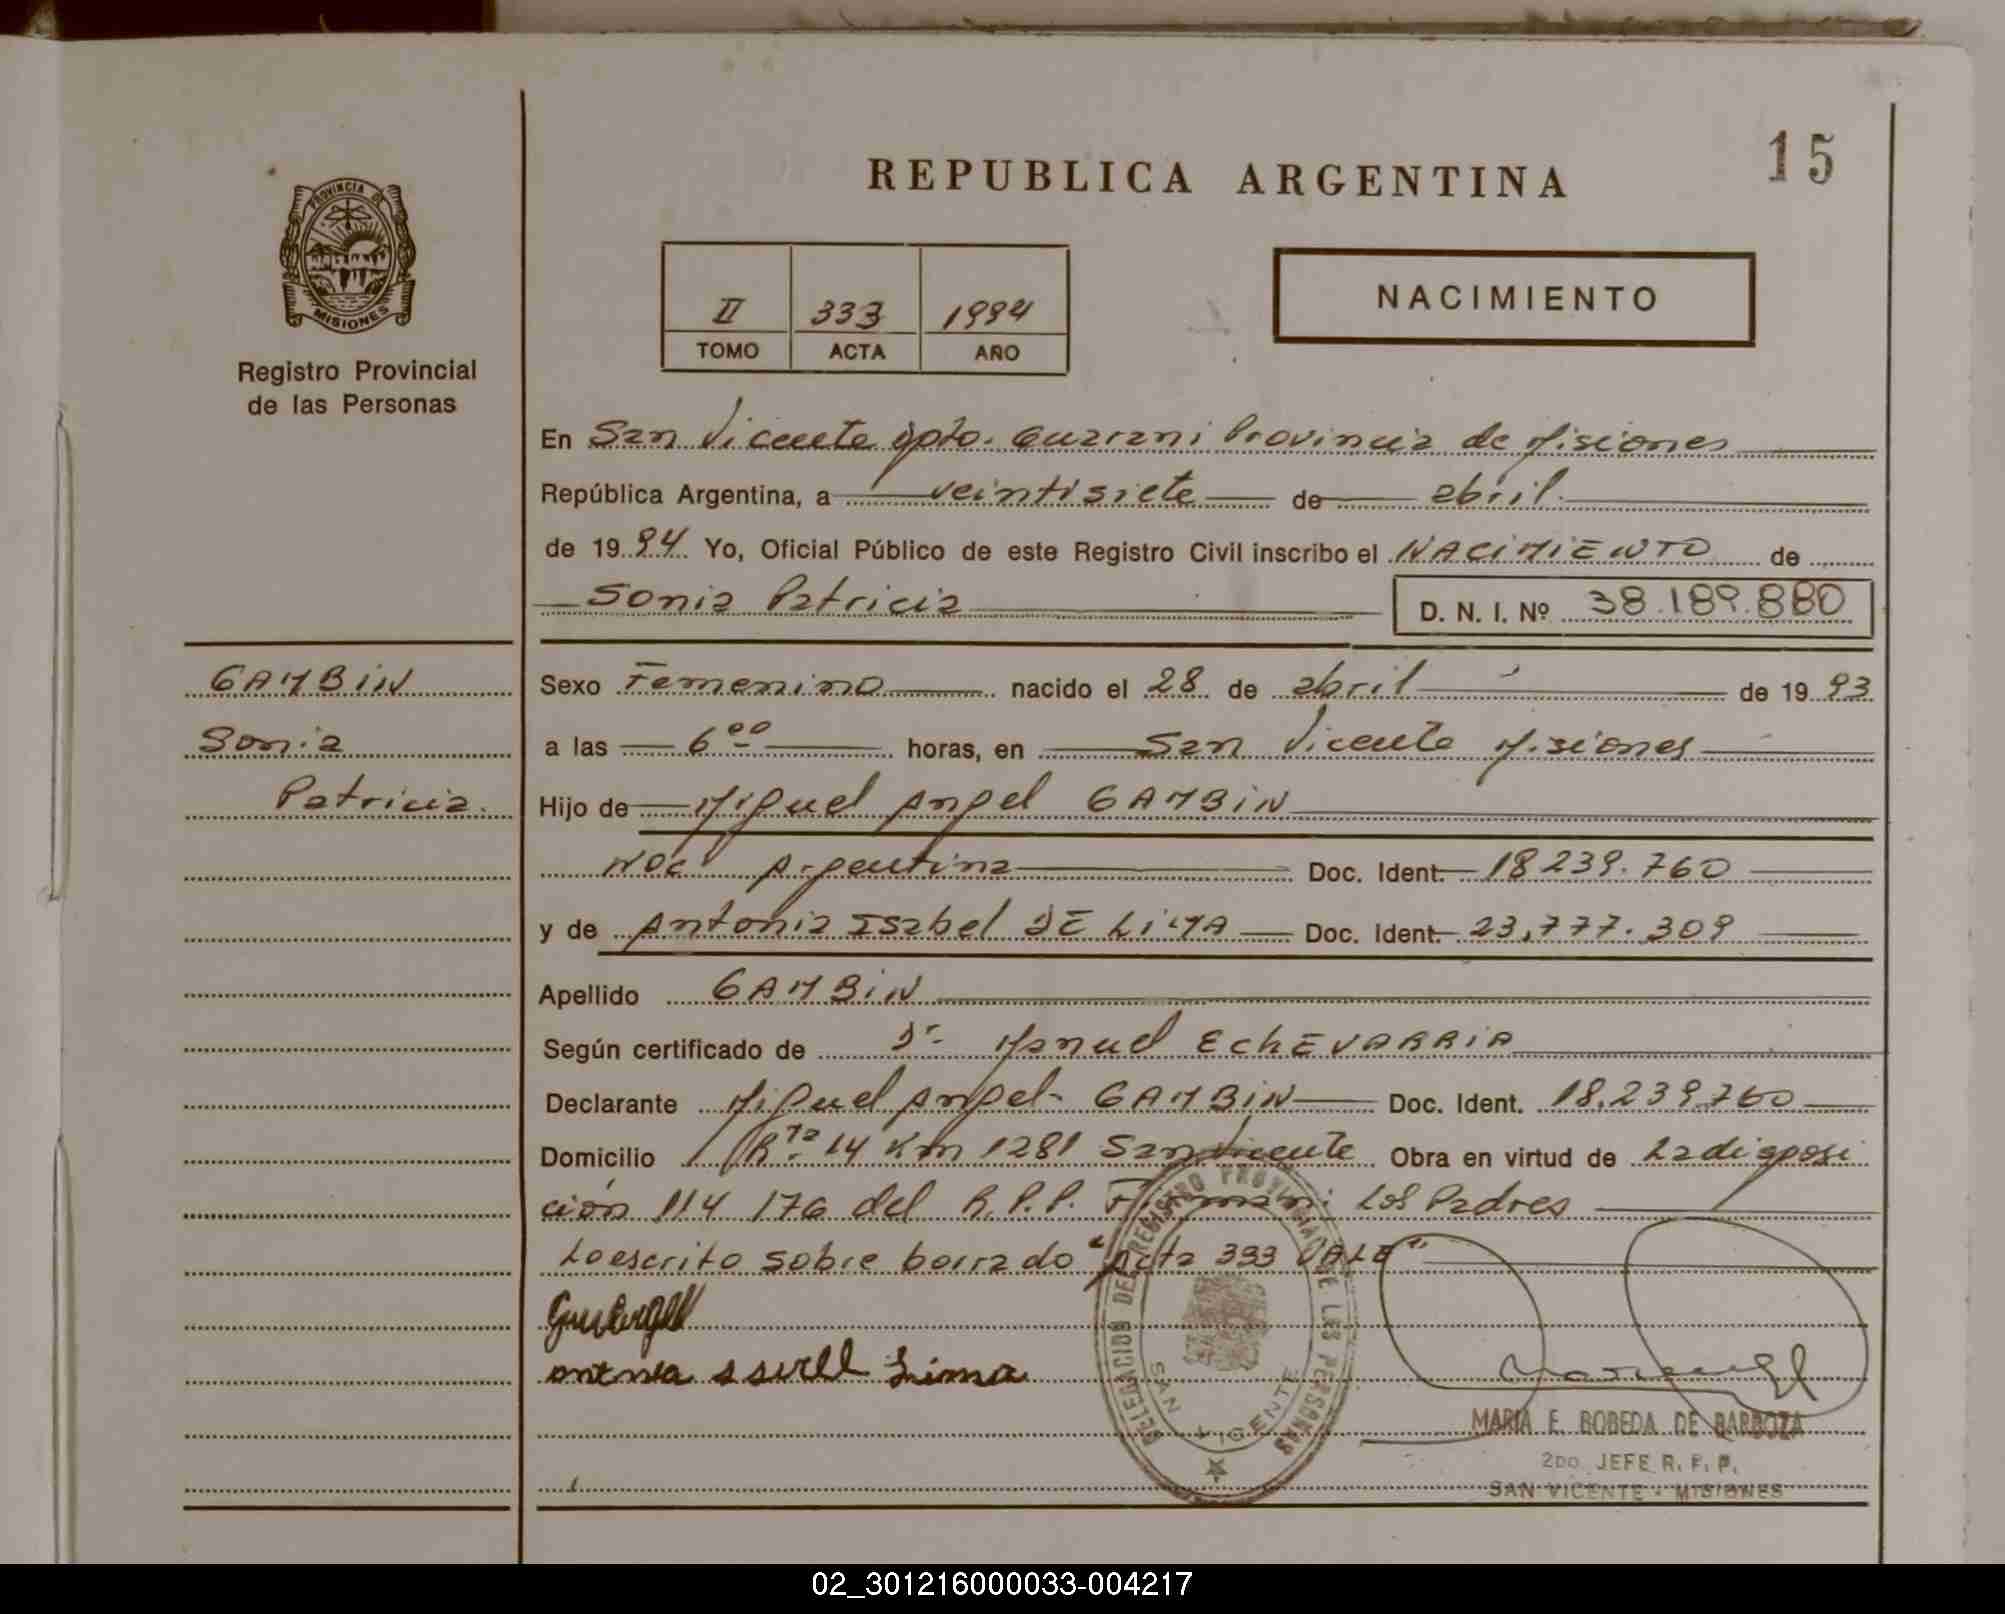 15
REPUBLICA ARGENTINA
PROVINCIA DE
MISIONES
Registro Provincial
de las Personas
II 333 1994
TOMO ACTA AÑO
NACIMIENTO
En San Vicente Dpto. Guarani Provincia de Misiones
República Argentina, a veintisiete de abril
de 1994 Yo, Oficial Público de este Registro Civil inscribo el NACIMIENTO de
Sonia Patricia D. N. I. Nº 38.189.880
GAMBIN
Sonia
Patricia.
Sexo Femenino nacido el 28 de abril de 1993
a las 6 00 horas, en San Vicente Misiones
Hijo de Miguel Angel GAMBIN
Nac Argentina Doc. Ident. 18239.760
y de Antonia Isabel DE LIMA Doc. Ident. 23,777.309
Apellido GAMBIN
Según certificado de Dr. Manuel EchEVARRIA
Declarante Miguel Angel GAMBIN Doc. Ident. 18.239.760
Domicilio Rta 14 Km 1281 San Vicente Obra en virtud de La disposi
ción 114 176 del R.P.P. Firman: Los Padres
Lo escrito sobre borrado "Acta 333 VALE"
Lima
DELEGACION DEL REGISTRO PROVINCIAL DE LES PERSONAS
SAN VICENTE
MARIA E. BOBEDA DE BARBOZA
2DO. JEFE R. P. P.
SAN VICENTE - MISIONES
02_301216000033-004217